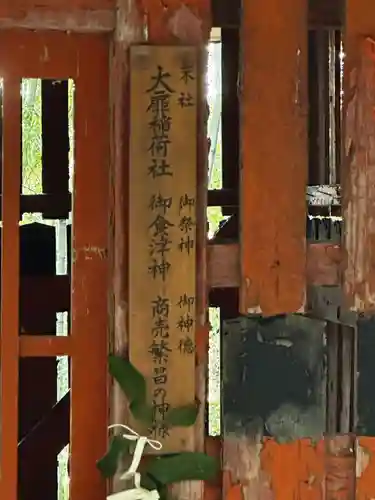 末社 御祭神 御神徳
大扉稲荷社 御食津神 商売繁昌の